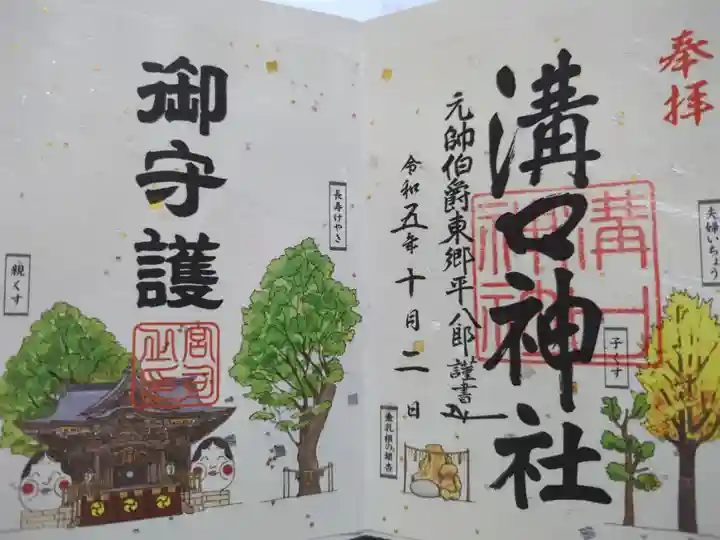 奉拝
溝口神社
溝口
神社
元帥伯爵東郷平八郎謹書
令和五年十月二日
夫婦いちょう
子くす
御守護
宮司之印
長寿けやき
親くす